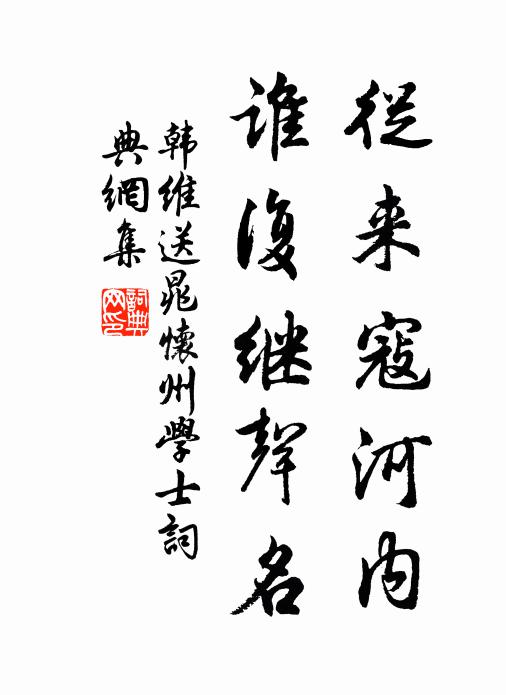 從来寇河内
誰復继聲名
韩維送晁懷州學士詞
典網集
詞典网印